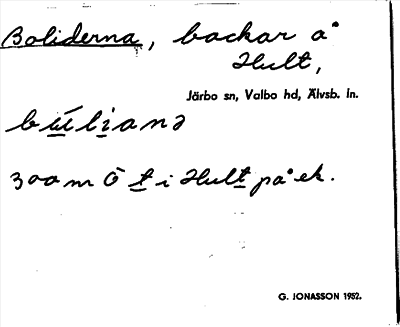 Boliderna, backar å
Hult,
Järbo sn, Valbo hd, Älvsb. ln.
búlianə
300 m Ö t i Hult på ek.
G. JONASSON 1952.